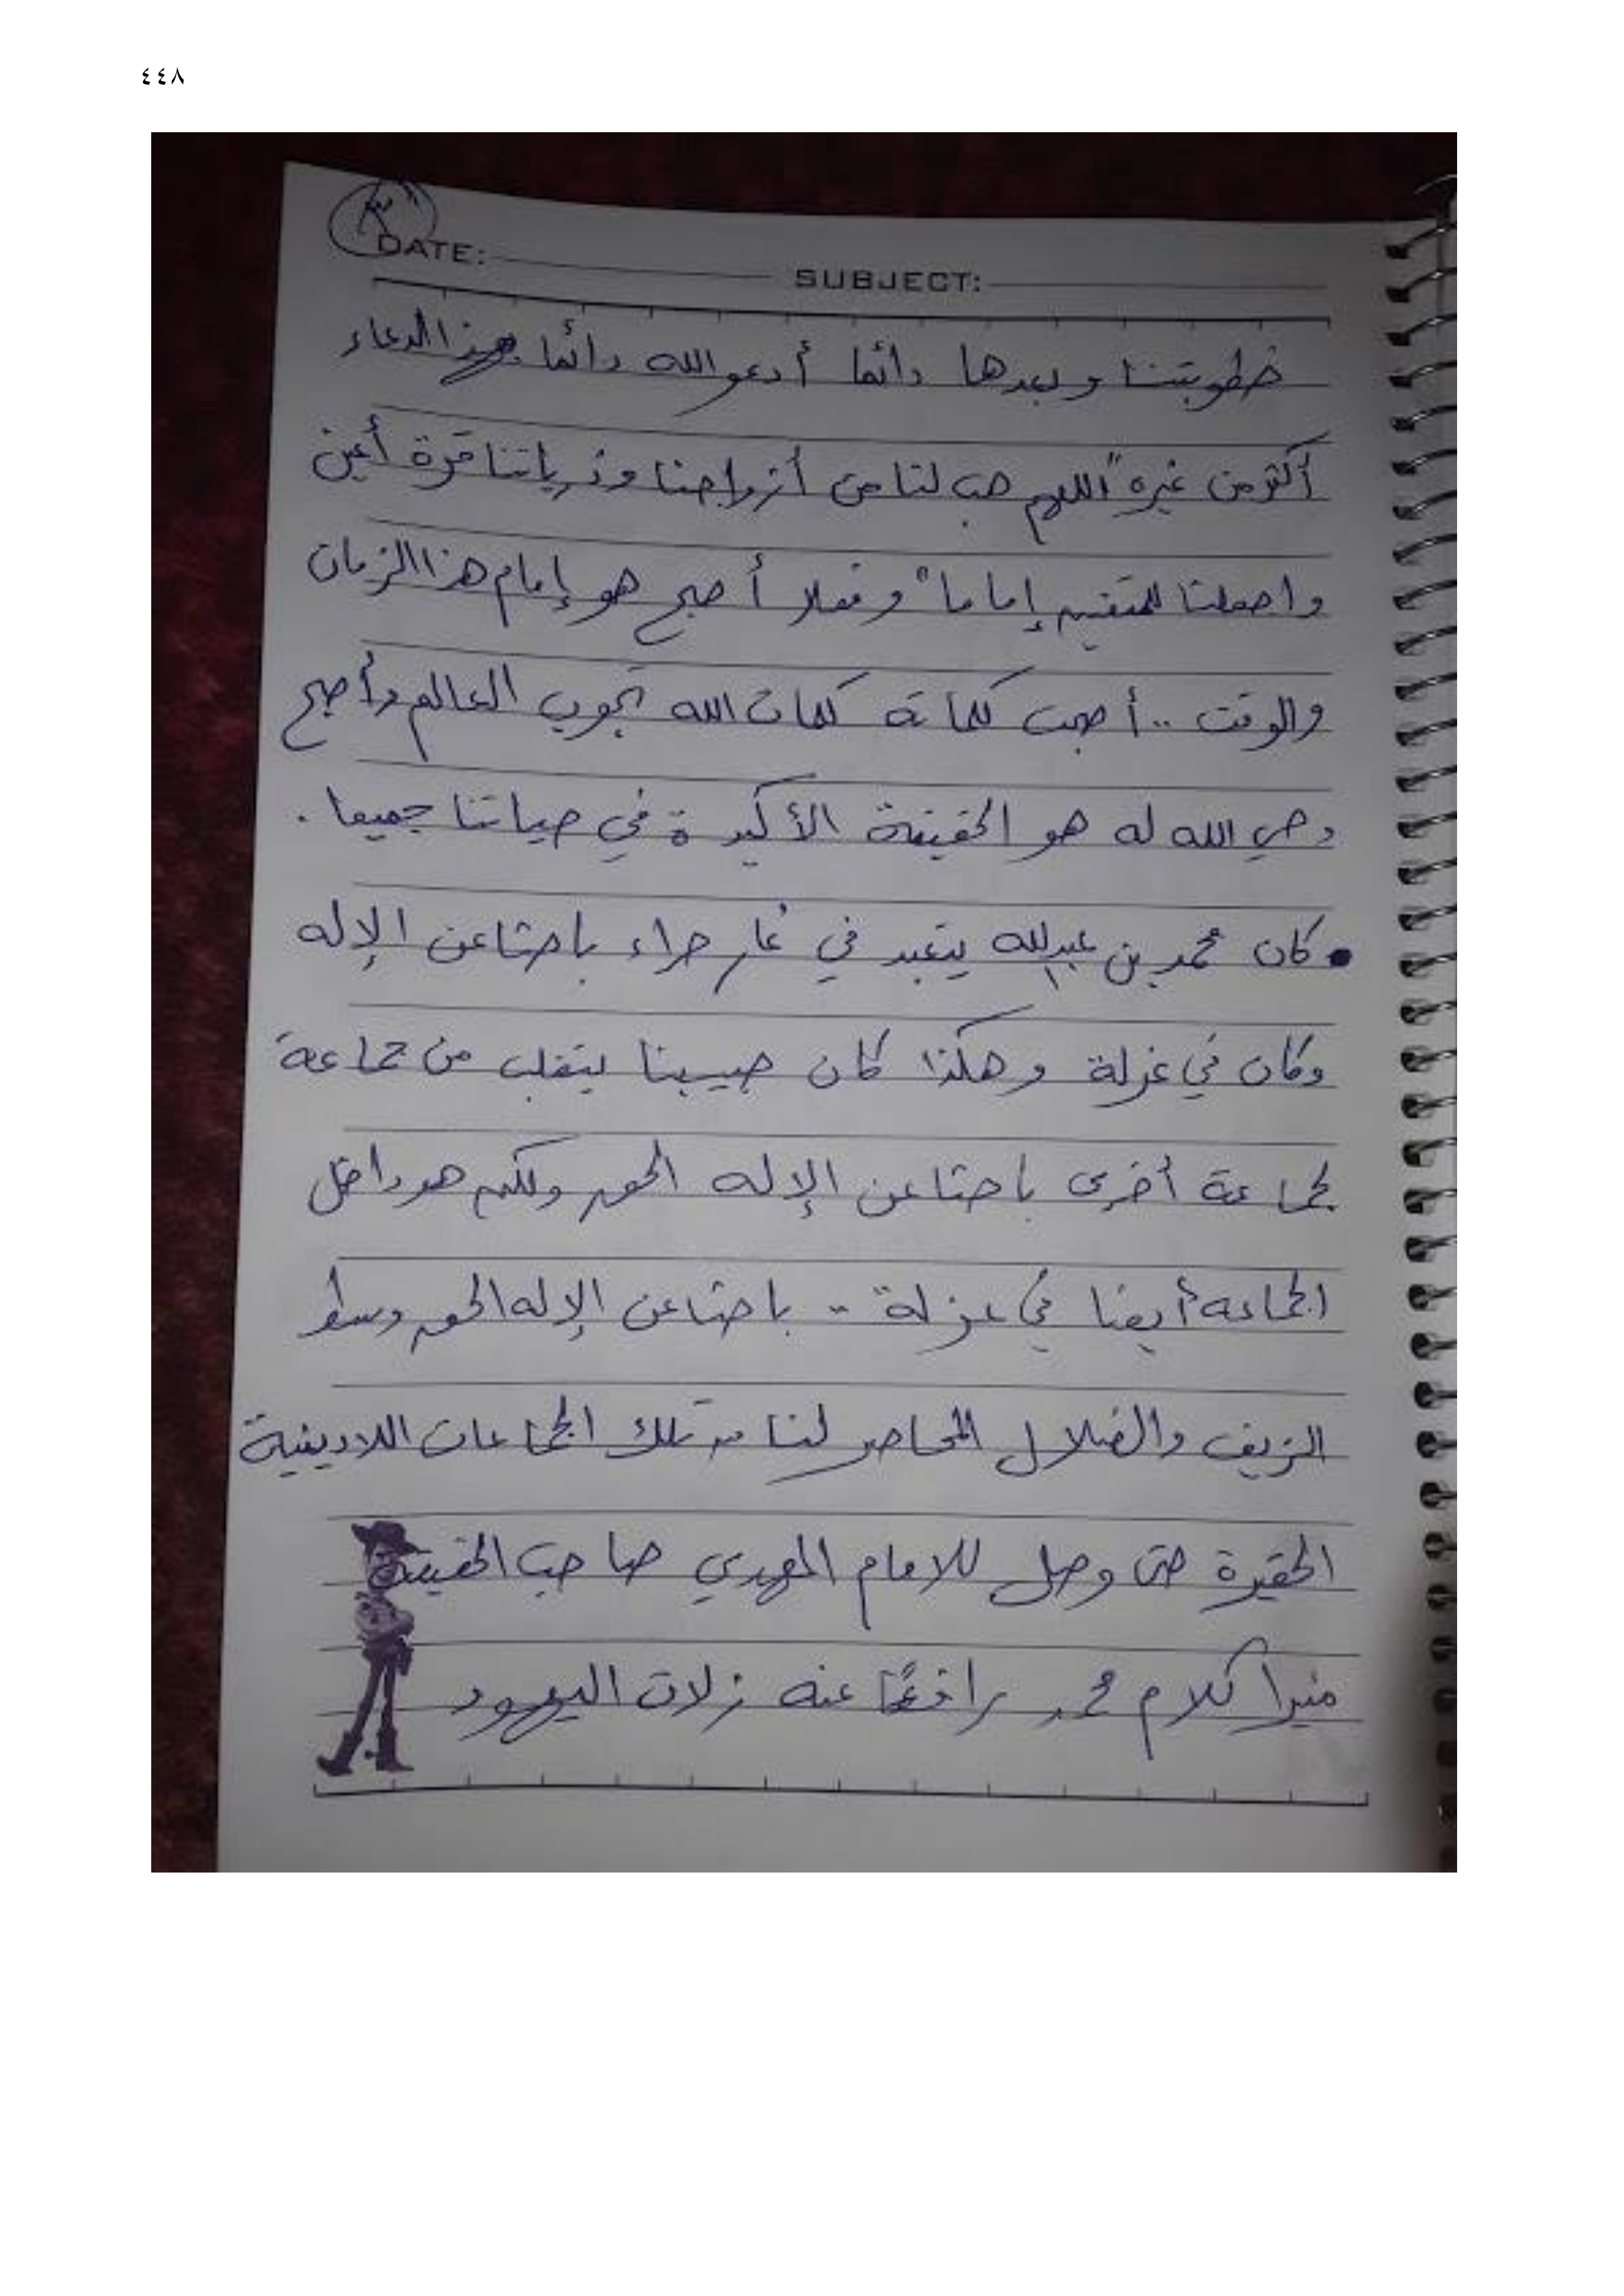 ٤٤٨
DATE: SUBJECT:
خطوبتنا وبعدها دائما أدعو الله دائما بهذا الدعاء
أكثر من غيره "اللهم هب لنا من أزواجنا وذرياتنا قرة أعين
واجعلنا للمتقين إماما" وفعلا أصبح هو إمام هذا الزمان
والوقت .. أصبحت كلماته كلمات الله تجوب العالم وأصبح
وحي الله له هو الحقيقة الأكيدة في حياتنا جميعا .
• كان محمد بن عبدلله يتعبد في غار حراء باحثا عن الإله
وكان في عزلة وهكذا كان حبيبنا يتقلب من جماعة
لجماعة أخرى باحثا عن الإله الحق ولكن هو داخل
الجماعة أيضا في عزلة .. باحثا عن الإله الحق وسط
الزيف والضلال المحاصر لنا من تلك الجماعات اللادينية
الحقيرة حتى وصل للامام المهدي صاحب الحقيقة
منيرا كلام محمد رافعًا عنه زلات اليهود